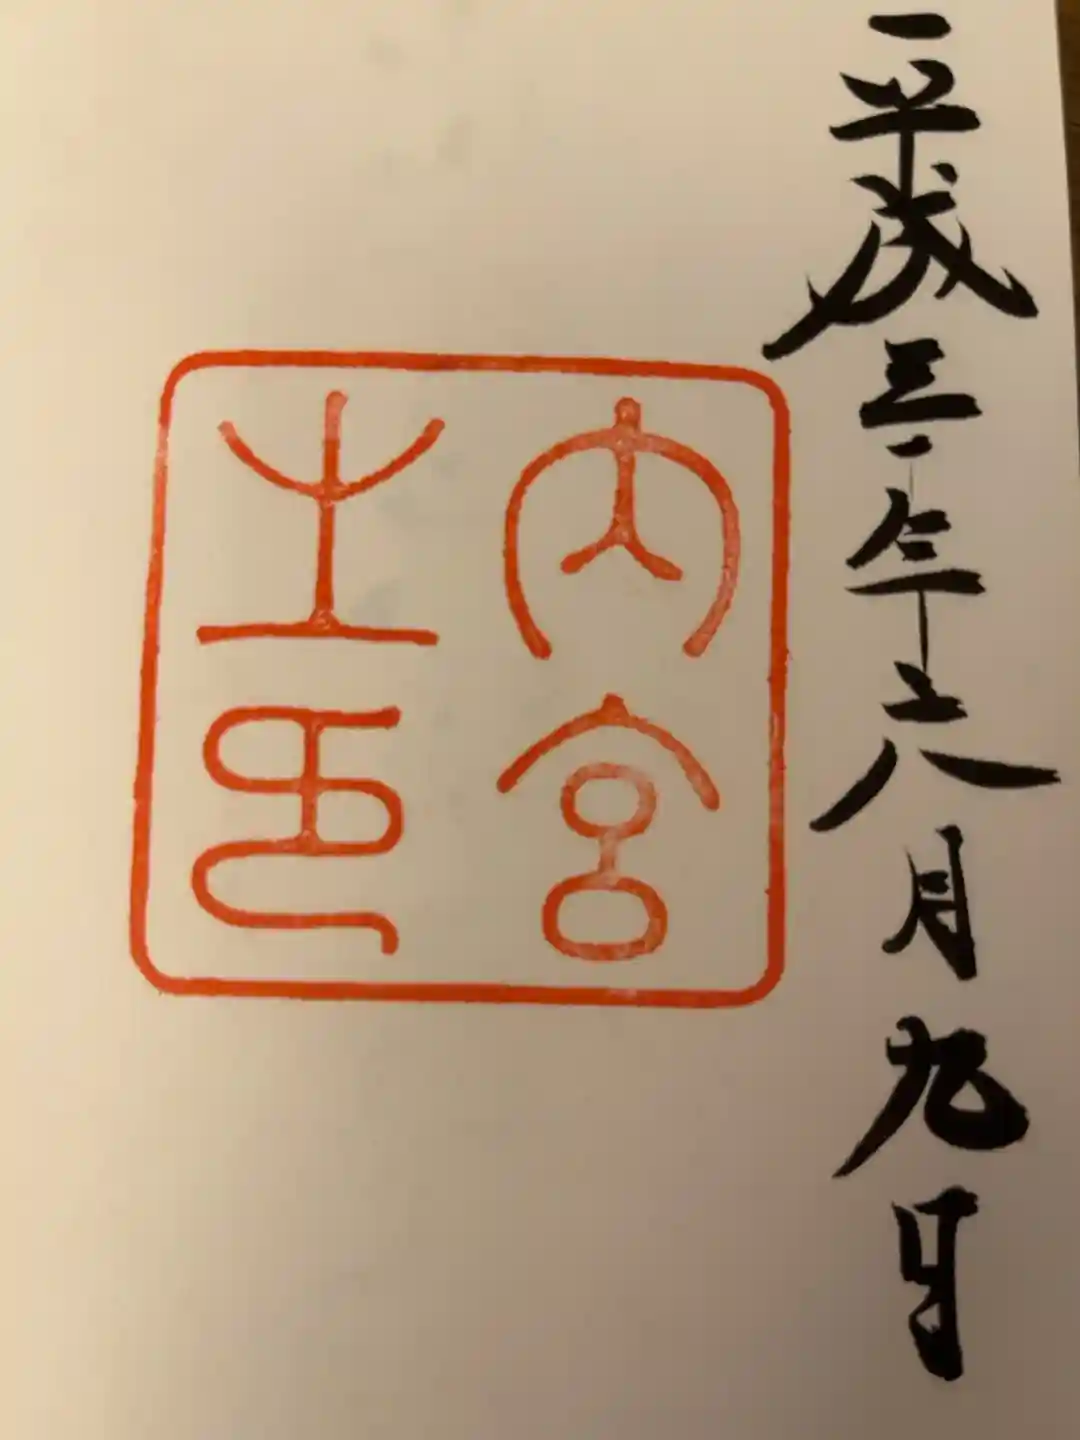 平成三十年六月九日
内宮
之印